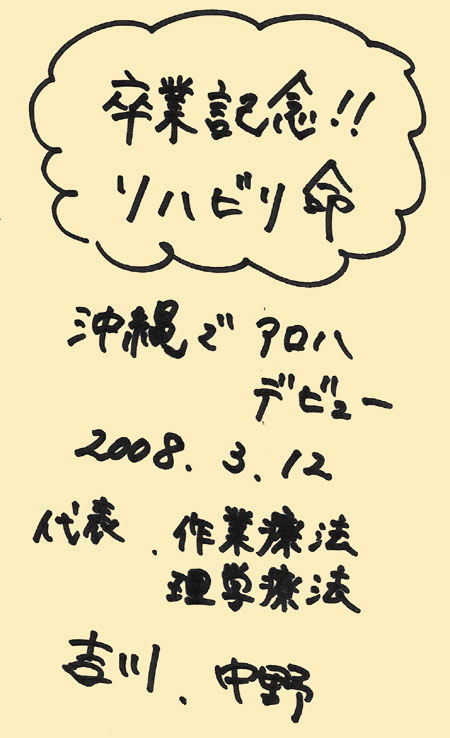 卒業記念!!
リハビリ命
沖縄で アロハ
デビュー
2008.3.12
代表、作業療法
理学療法
吉川、中野